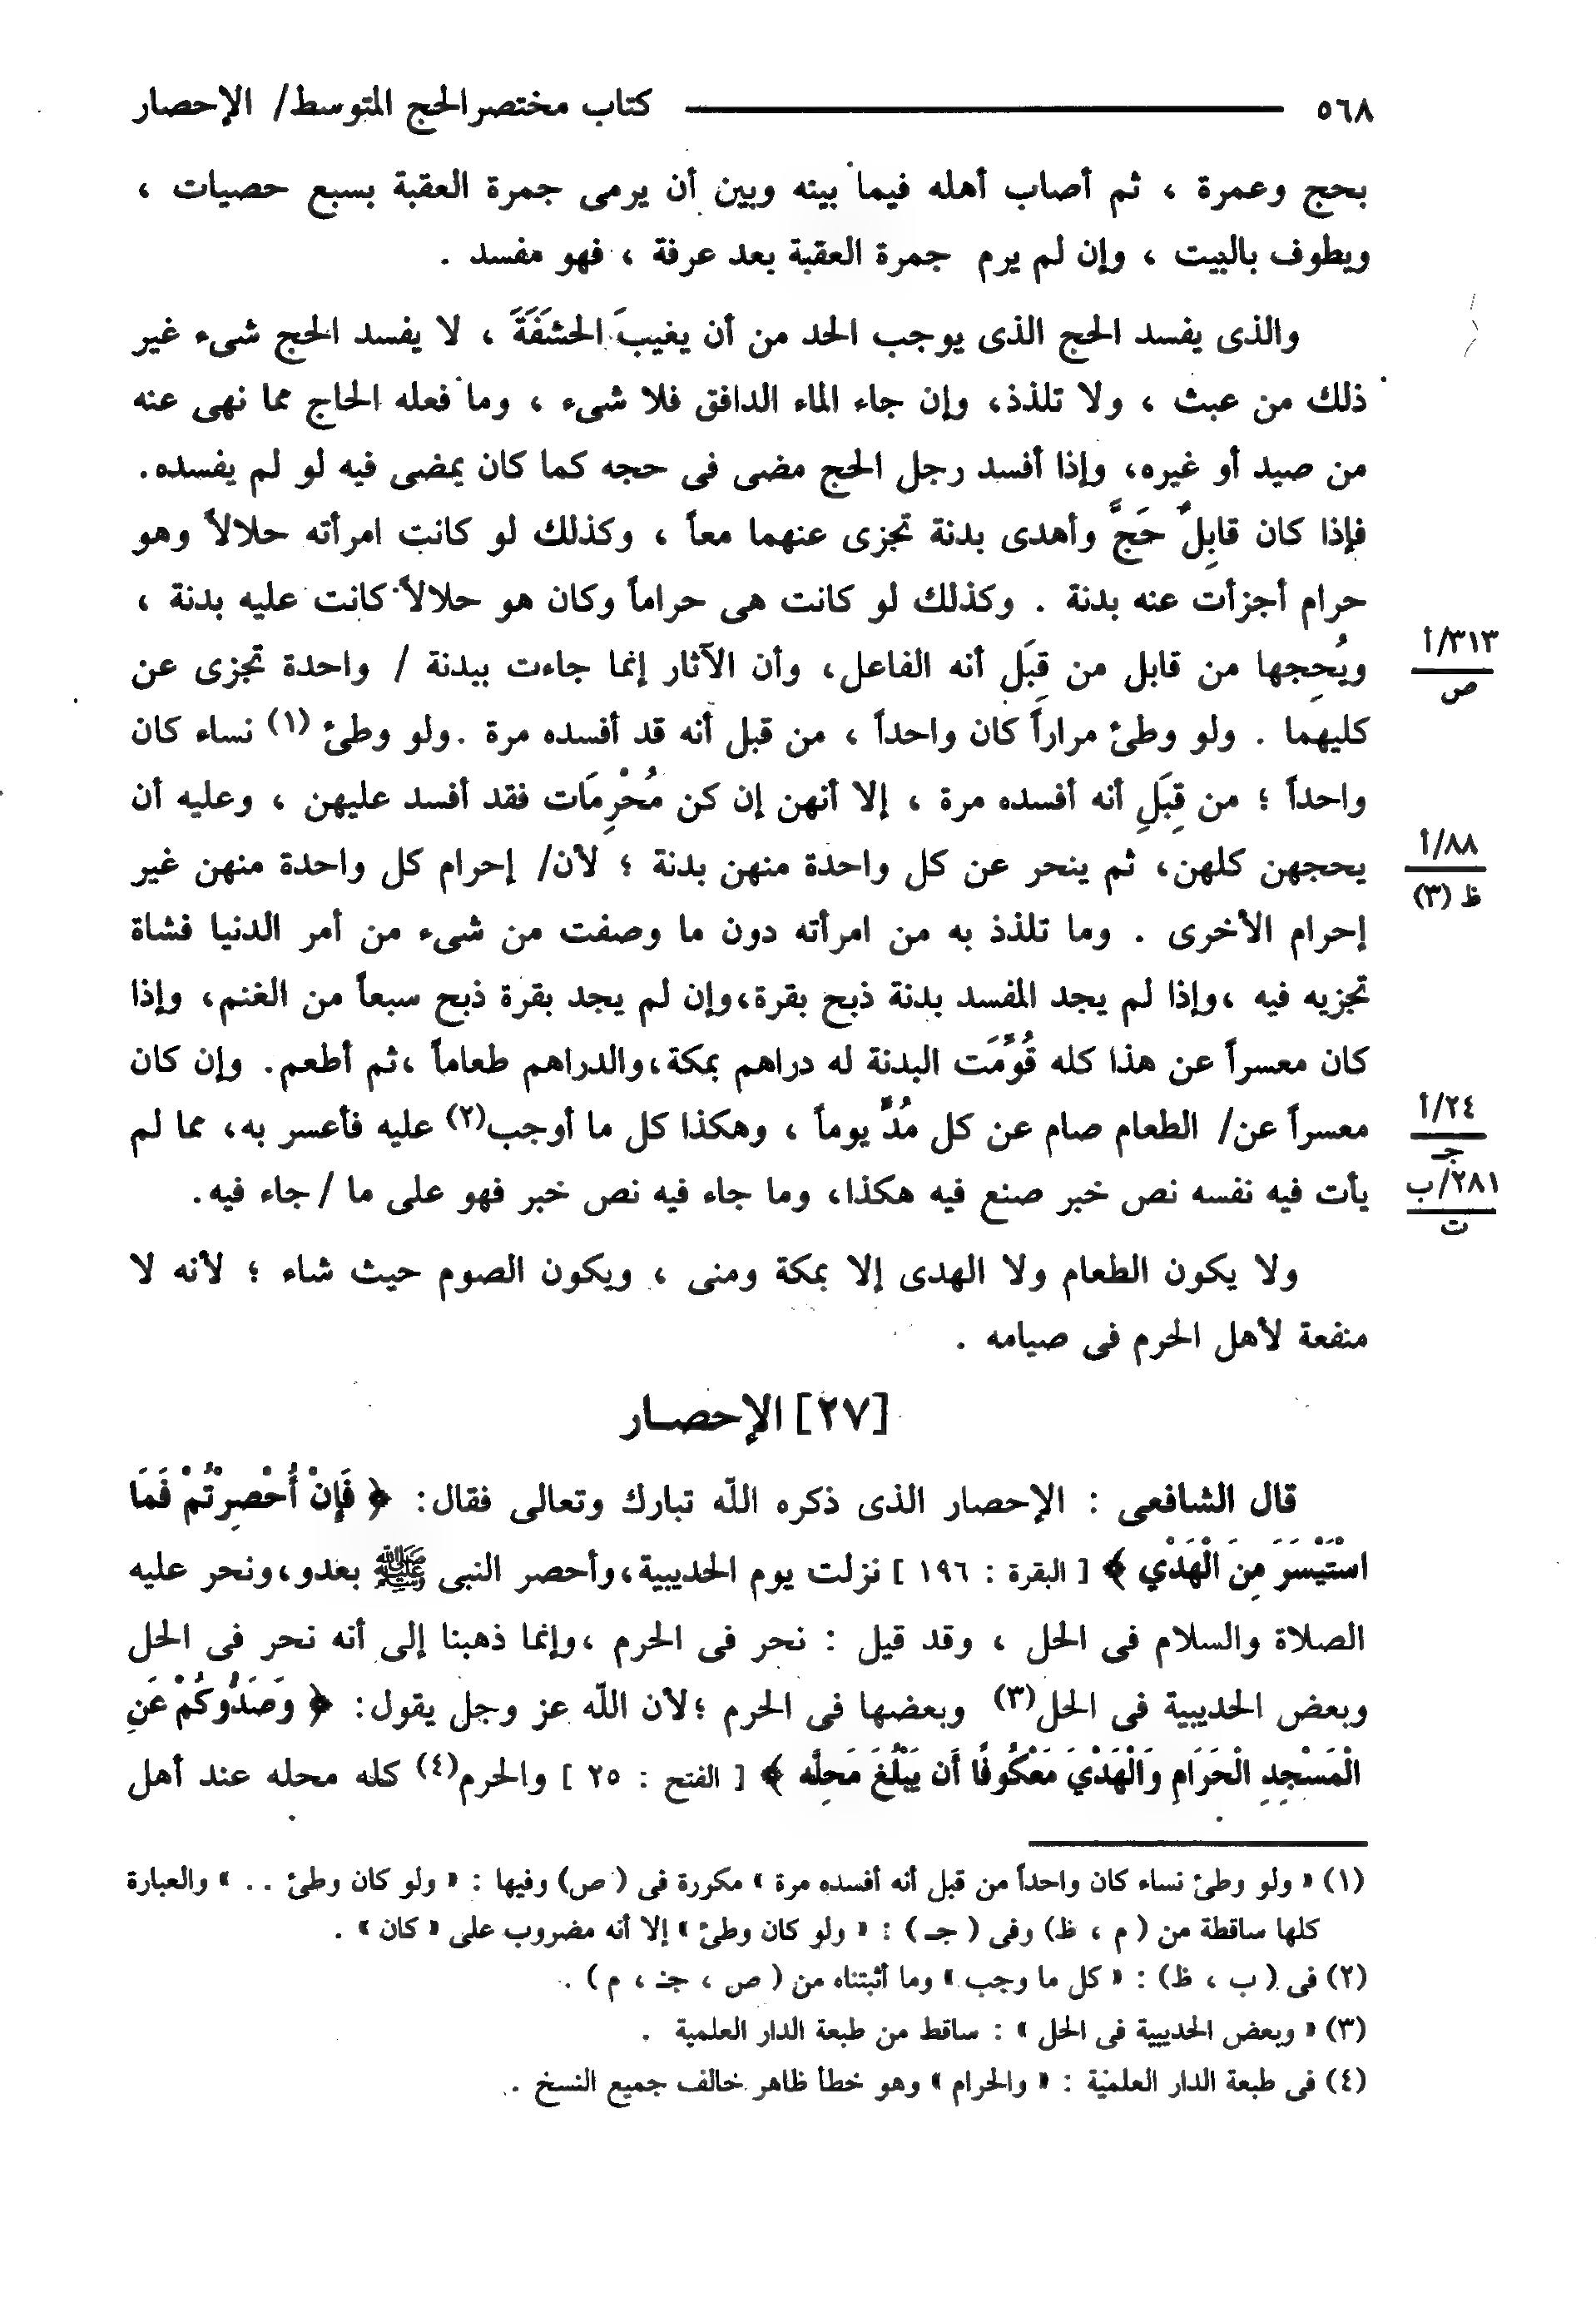 ٥٦٨ كتاب مختصر الحج المتوسط/ الإحصار
بحج وعمرة ، ثم أصاب أهله فيما بينه وبين أن يرمى جمرة العقبة بسبع حصيات ،
ويطوف بالبيت ، وإن لم يرم جمرة العقبة بعد عرفة ، فهو مفسد .
والذى يفسد الحج الذى يوجب الحد من أن يغيبَ الحشَفَةَ ، لا يفسد الحج شىء غير
ذلك من عبث ، ولا تلذذ، وإن جاء الماء الدافق فلا شىء ، وما فعله الحاج مما نهى عنه
من صيد أو غيره، وإذا أفسد رجل الحج مضى فى حجه كما كان يمضى فيه لو لم يفسده.
فإذا كان قابِلٌ حَجَّ وأهدى بدنة تجزى عنهما معاً ، وكذلك لو كانت امرأته حلالاً وهو
حرام أجزأت عنه بدنة . وكذلك لو كانت هى حراماً وكان هو حلالاً كانت عليه بدنة ،
ويُحِجها من قابل من قِبَلِ أنه الفاعل، وأن الآثار إنما جاءت ببدنة / واحدة تجزى عن
٣١٣/أ
ص
كليهما . ولو وطئ مراراً كان واحداً ، من قبل أنه قد أفسده مرة .ولو وطئ (١) نساء كان
واحداً ؛ من قِبَلِ أنه أفسده مرة ، إلا أنهن إن كن مُحْرِمَات فقد أفسد عليهن ، وعليه أن
يحجهن كلهن، ثم ينحر عن كل واحدة منهن بدنة ؛ لأن/ إحرام كل واحدة منهن غير
٨٨/أ
ظ (٣)
إحرام الأخرى . وما تلذذ به من امرأته دون ما وصفت من شىء من أمر الدنيا فشاة
تجزيه فيه ،وإذا لم يجد المفسد بدنة ذبح بقرة،وإن لم يجد بقرة ذبح سبعاً من الغنم، وإذا
كان معسراً عن هذا كله قُوِّمَت البدنة له دراهم بمكة،والدراهم طعاماً ،ثم أطعم. وإن كان
معسراً عن/ الطعام صام عن كل مُدٍّ يوماً ، وهكذا كل ما أوجب(٢) عليه فأعسر به، مما لم
٢٤/أ
جـ
يأت فيه نفسه نص خبر صنع فيه هكذا، وما جاء فيه نص خبر فهو على ما /جاء فيه.
٢٨١/ب
ت
ولا يكون الطعام ولا الهدى إلا بمكة ومنى ، ويكون الصوم حيث شاء ؛ لأنه لا
منفعة لأهل الحرم فى صيامه .
[٢٧] الإحصـار
قال الشافعى : الإحصار الذى ذكره اللّه تبارك وتعالى فقال: ﴿ فَإِنْ أُحْصِرْتُمْ فَمَا
اسْتَيْسَرَ مِنَ الْهَدْيِ ﴾ [ البقرة : ١٩٦ ] نزلت يوم الحديبية،وأحصر النبى ﷺ بعدو،ونحر عليه
الصلاة والسلام فى الحل ، وقد قيل : نحر فى الحرم ،وإنما ذهبنا إلى أنه نحر فى الحل
وبعض الحديبية فى الحل(٣) وبعضها فى الحرم ؛لأن اللّه عز وجل يقول: ﴿ وَصَدُّوكُمْ عَنِ
الْمَسْجِدِ الْحَرَامِ وَالْهَدْيَ مَعْكُوفًا أَن يَبْلُغَ مَحِلَّه ﴾ [ الفتح : ٢٥ ] والحرم(٤) كله محله عند أهل
(١) « ولو وطئ نساء كان واحداً من قبل أنه أفسده مرة » مكررة فى ( ص) وفيها : « ولو كان وطئ . . » والعبارة
كلها ساقطة من ( م ، ظ) وفى ( جـ ) : « ولو كان وطئ » إلا أنه مضروب على « كان » .
(٢) فى ( ب ، ظ) : « كل ما وجب » وما أثبتناه من ( ص ، جـ ، م ) .
(٣) « وبعض الحديبية فى الحل » : ساقط من طبعة الدار العلمية .
(٤) فى طبعة الدار العلمية : « والحرام » وهو خطأ ظاهر خالف جميع النسخ .